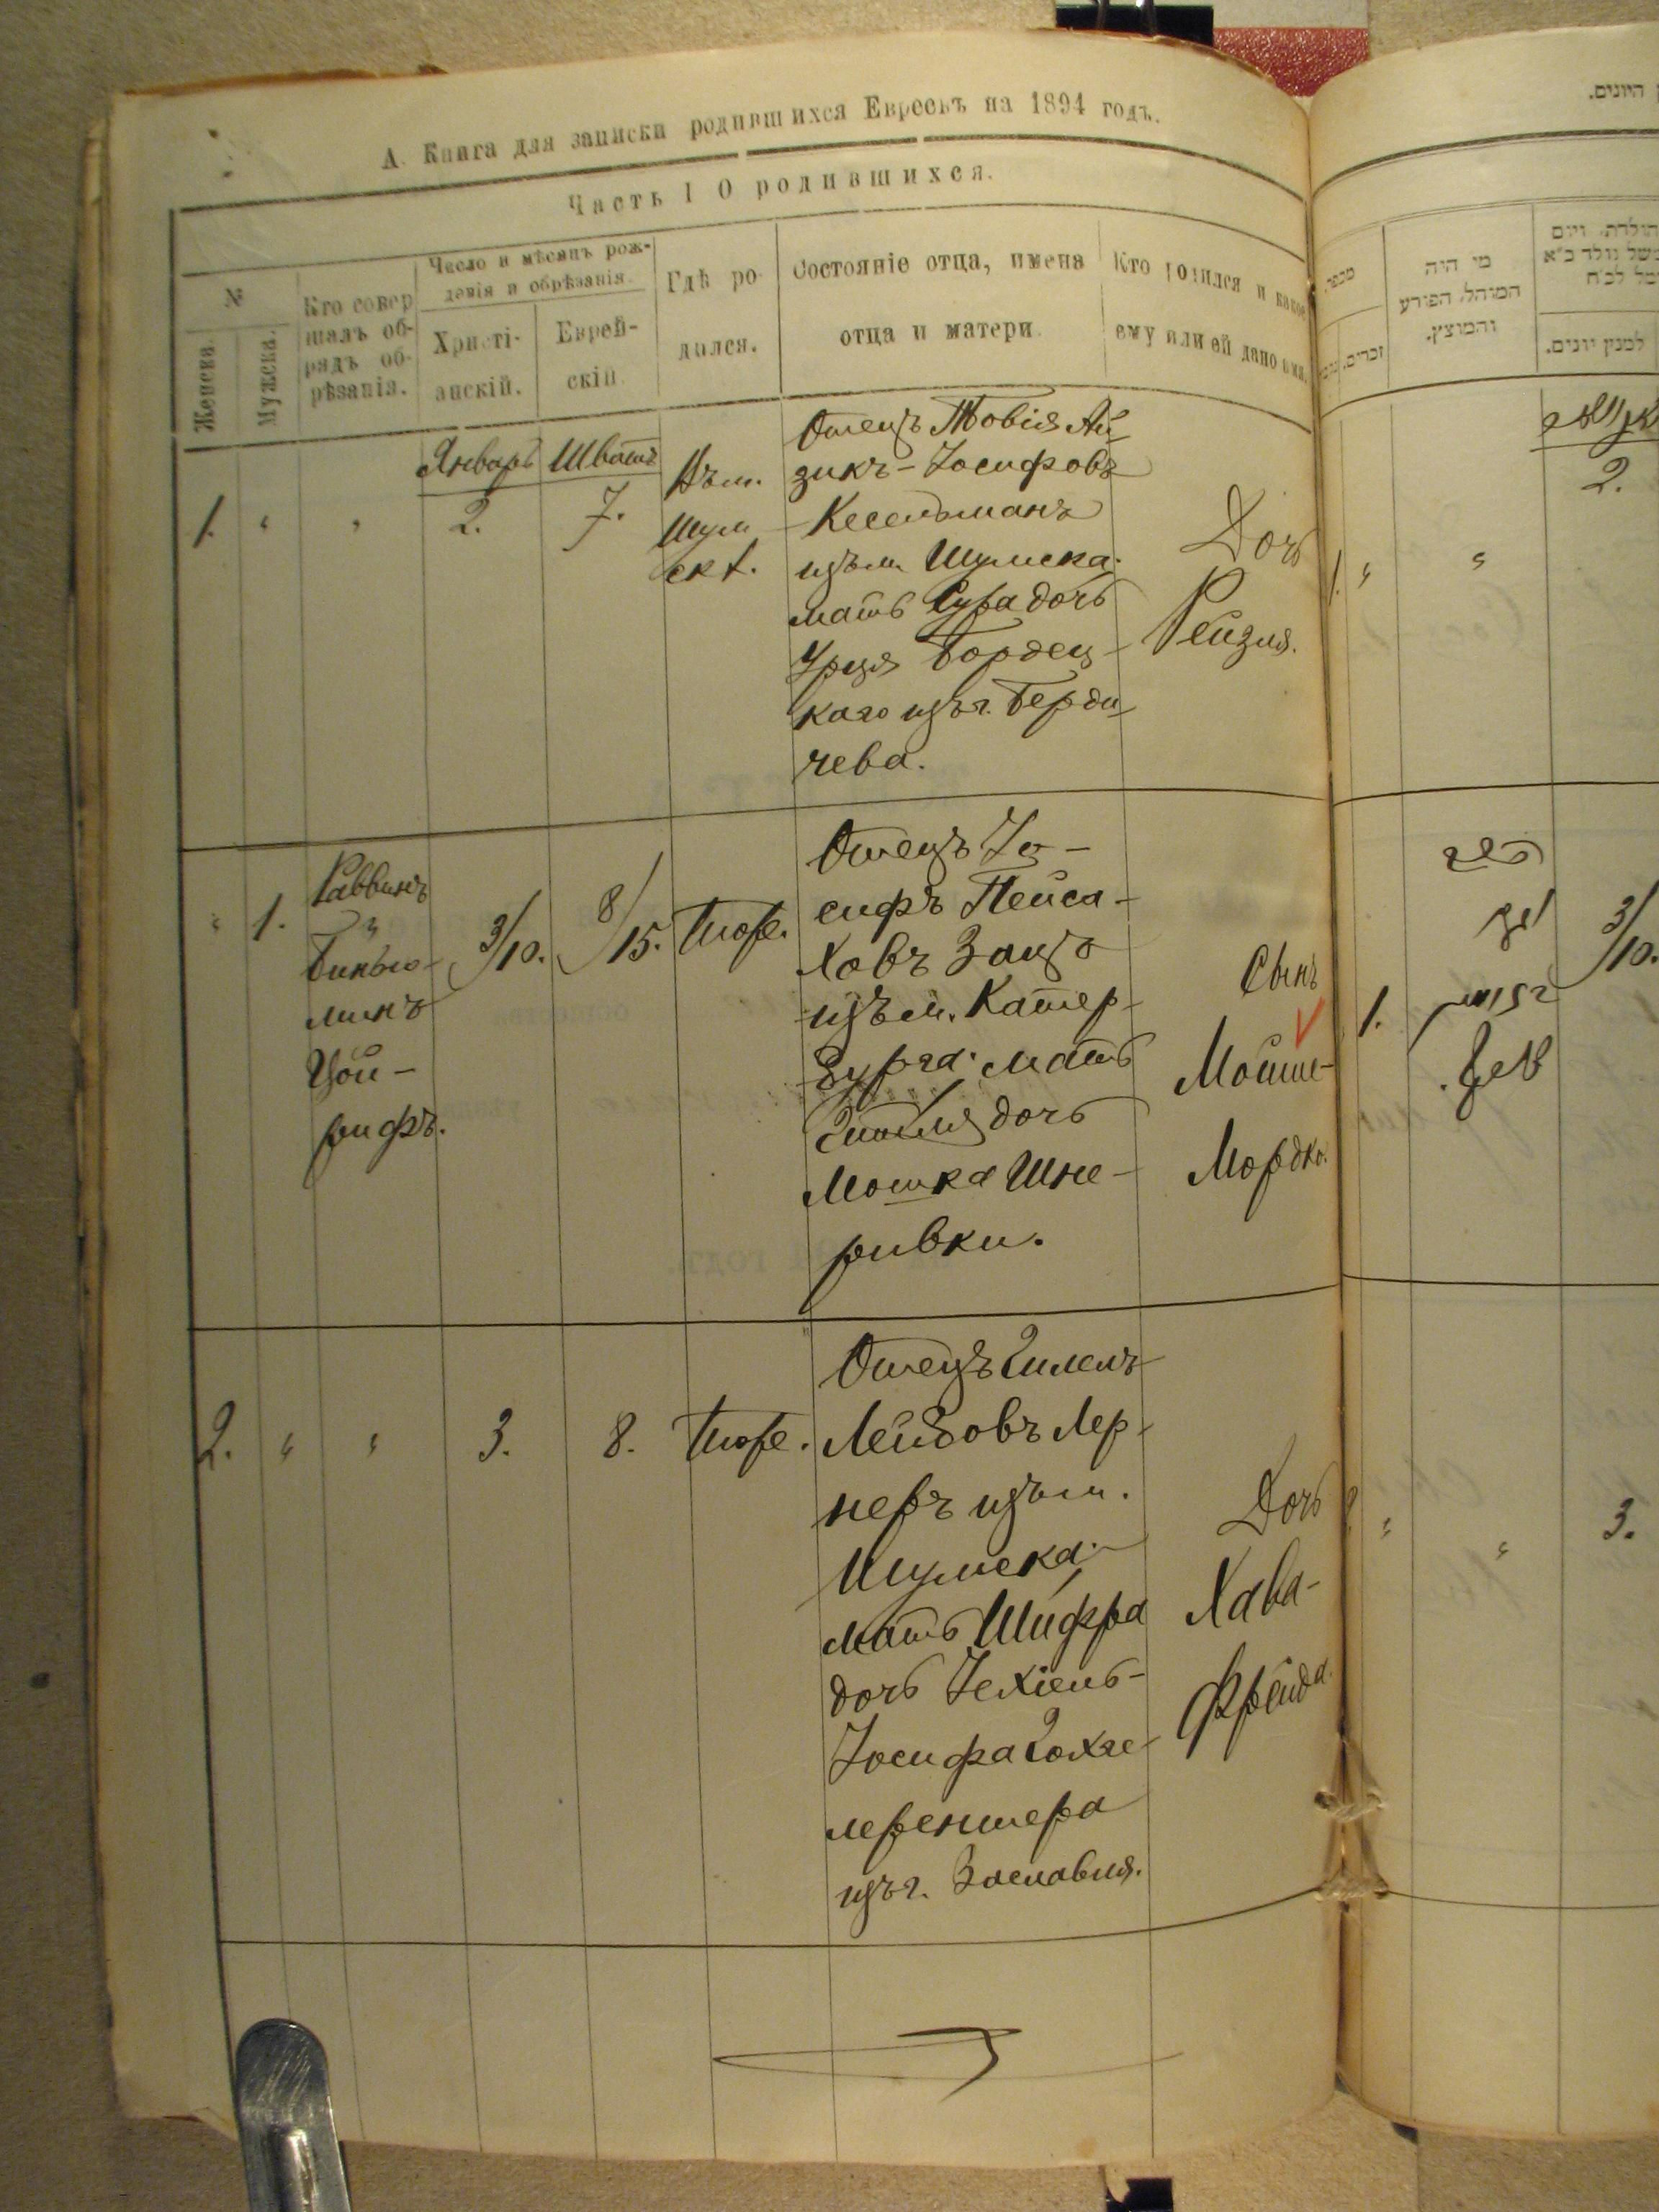 А. Книга для записки родившихся Евреевъ на 1894 годъ.
Часть I О родившихся.
№
Женска.
Мужска.
Кто совер
шалъ об-
рядъ об-
рѣзанія.
Число и мѣсяцъ рож-
денія и обрѣзанія.
Христі-
анскій.
Еврей-
скій
Гдѣ ро-
дился.
Состояніе отца, имена
отца и матери.
Кто родился и какое
ему или ей дано имя.
Январь Шватъ
1. „ „ 2. 7.
Въ м.
Шум
скѣ.
Отецъ Товія Ай
зикъ-Іосифовъ
Кесельманъ
изъ м. Шумска.
мать Сура дочь
Урця Бордец-
каго изъ г. Берди
чева.
Дочь
Рейзля.
„ 1.
Раввинъ
Биньо-
минъ
Цой-
рифъ.
3/10. 8/15. Тоже.
Отецъ Іо-
сифъ Пейса-
ховъ Зацъ
изъ м. Катер-
бурга. мать
дочь
Мошка Шне-
ривки.
Сынъ
Мойше-
Мордко.
2. „ „ 3. 8. Тоже.
Отецъ Гилелъ
Лейбовъ Лер-
неръ изъ м.
Шумска.
мать Шифра
дочь Іехіель-
Іосифа Гохге-
лерентера
изъ г. Заславля.
Дочь
Хава-
Фрейда.
היונים.
מספר
זכרים.
מי היה
המוהל, הפורע
והמוצץ.
למנין יונים.
2.
1. „ „
1.
הרב
3/10.
„ „ 3.